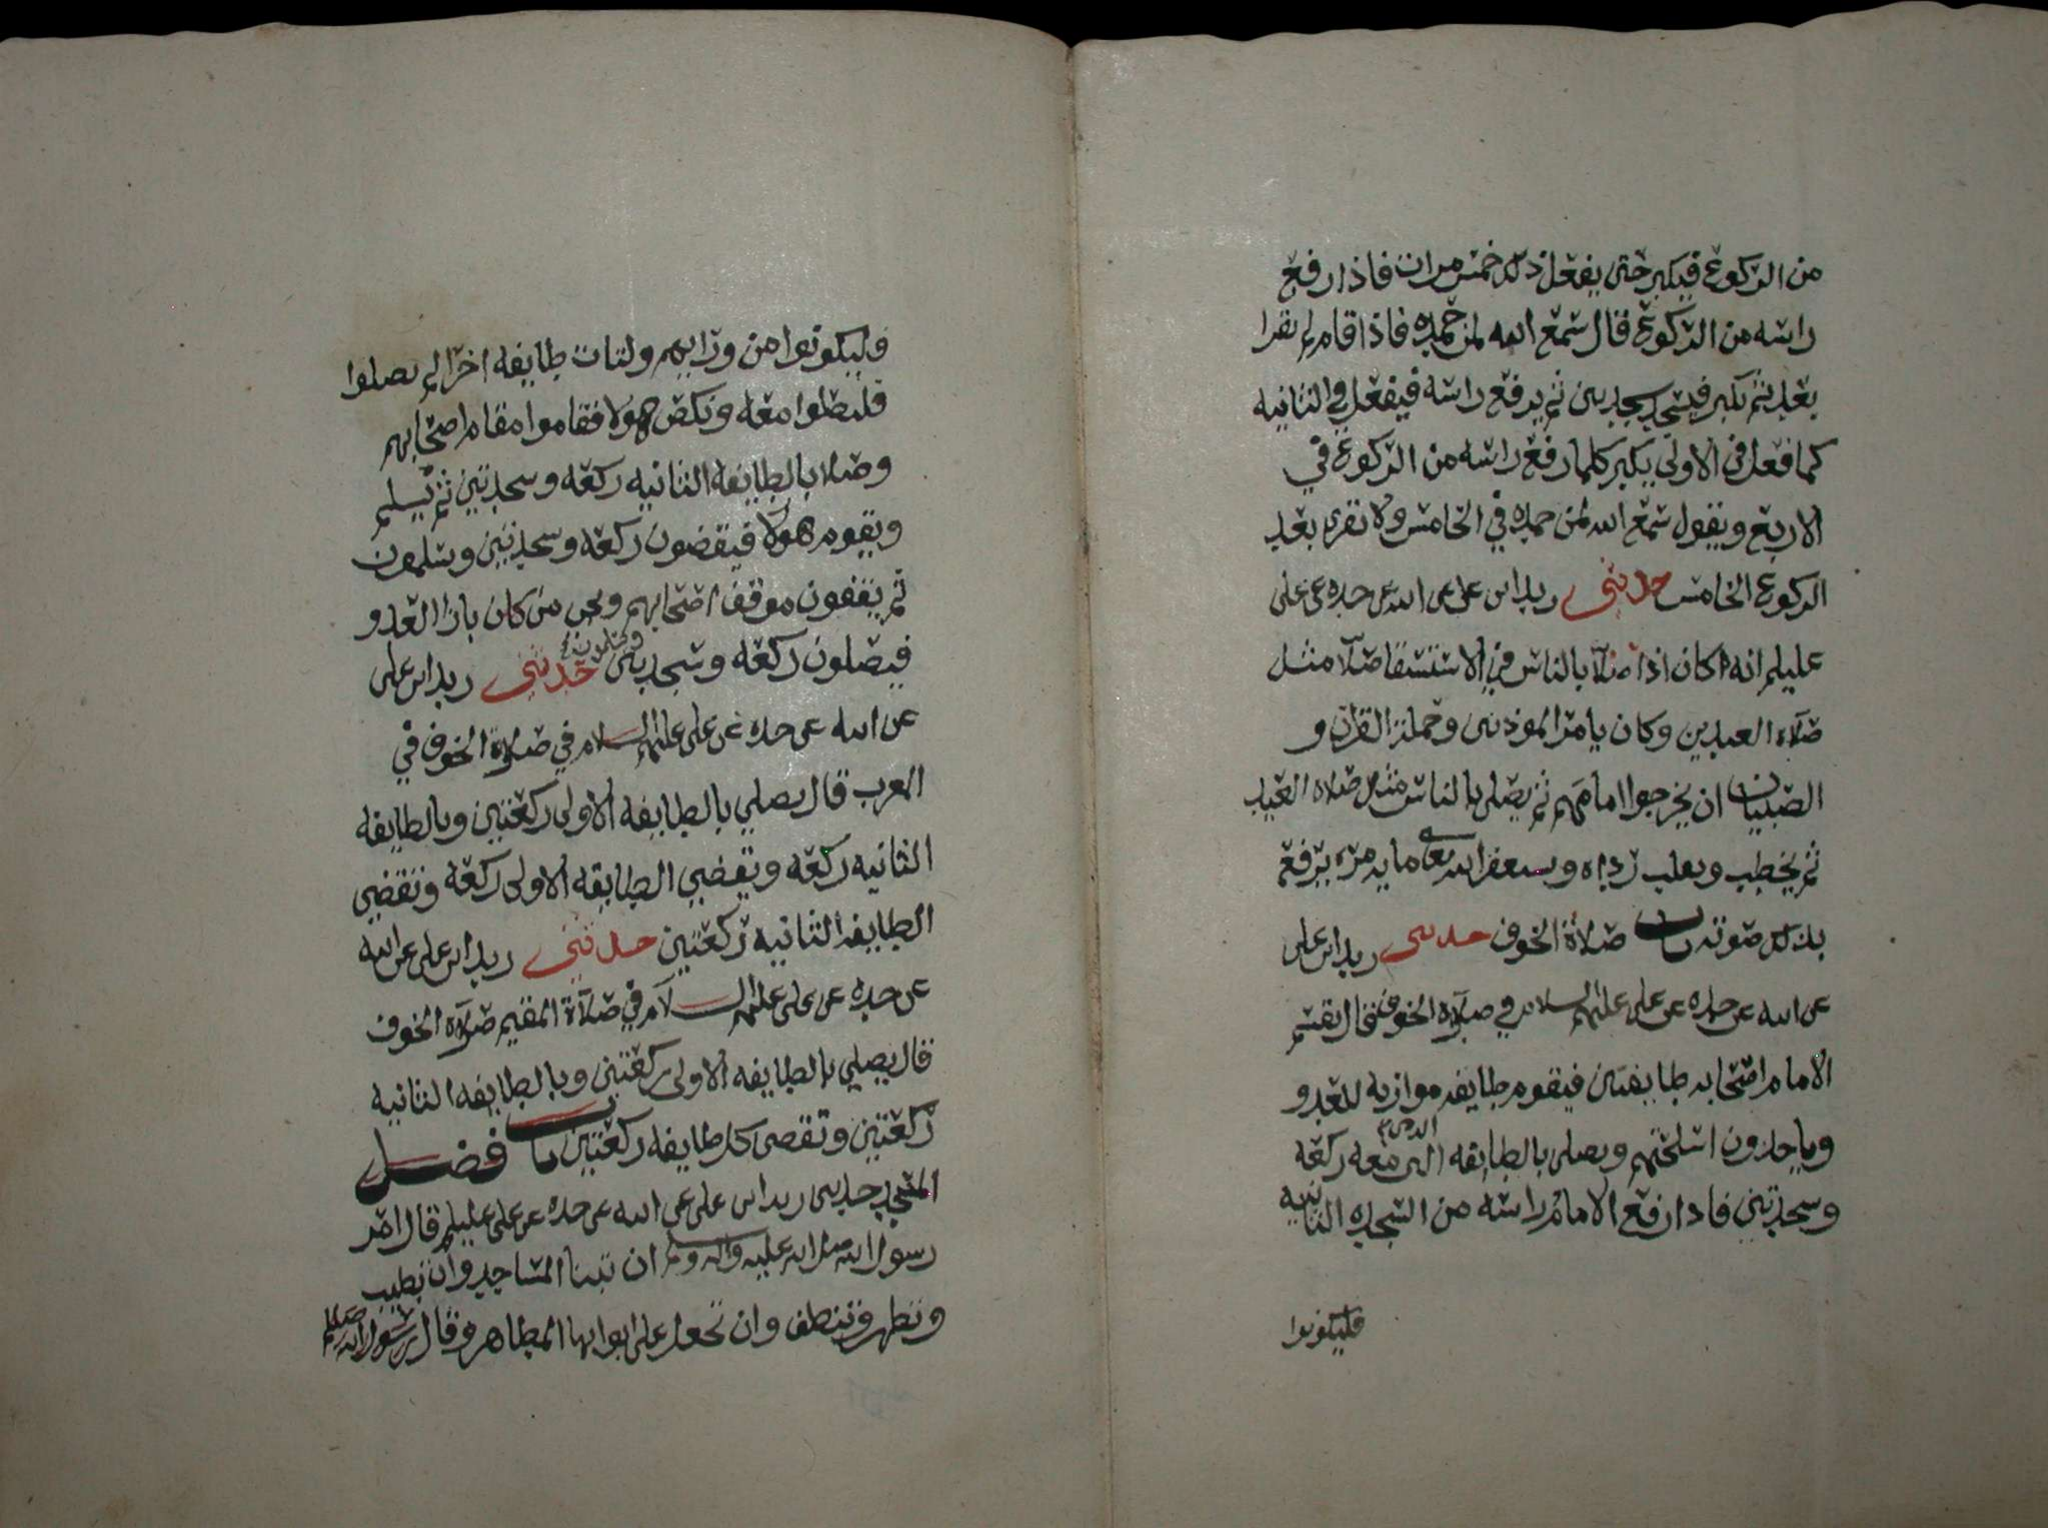 من الركوع فيكبر حتى يفعل ذلك خمس مرات فاذا رفع
راسه من الركوع قال سمع الله لمن حمده فاذا قام لم يقرا
بعد ثم يكبر فيسجد سجدتين ثم يرفع راسه فيفعل في الثانيه
كما فعل في الاولى يكبر كلما رفع راسه من الركوع في
الاربع ويقول سمع الله لمن حمده في الخامس ولا تقرى بعد
الركوع الخامس حدثني زيد ابن علي عن ابيه عن جده عن علي
عليلم انه اكان اذا صلا بالناس في الاستسقا صلا مثل
صلاه العيدين وكان يامر الموذنين وحملة القران و
الصبيان ان يخرجوا امامهم ثم يصلي بالناس مثل صلاه العيد
ثم يخطب ويقلب رداه ويستغفر الله تعالى مايه مره يرفع
بذلك صوته باب صلاة الخوف حدثني زيد ابن علي
عن ابيه عن جده عن علي عليهم السلام في صلاة الخوف قال يقسم
الامام اصحابه طايفتين فيقوم طايفه موازيه للعدو
وياخذون اسلحتهم ويصلي بالطايفه الذين معه ركعه
وسجدتين فاذا رفع الامام راسه من السجده الثانيه
فليكونوا
فليكونوا من ورايهم ولتات طايفه اخرا لم يصلوا
فليصلوا معه ونكص هولا فقاموا مقام اصحابهم
وصلا بالطايفه الثانيه ركعه وسجدتين ثم يسلم
ويقوم هولا فيقضون ركعه وسجدتين ويسلمون
ثم يقفون موقف اصحابهم ويجي من كان بازا العدو
فيصلون ركعه وسجدتين ويسلمون حدثني زيد ابن علي
عن ابيه عن جده عن علي عليهم السلام في صلاة الخوف في
المغرب قال يصلي بالطايفه الاولى ركعتين وبالطايفه
الثانيه ركعه وتقضي الطايفه الاولى ركعه وتقضي
الطايفه الثانيه ركعتين حدثني زيد ابن علي عن ابيه
عن جده عن علي عليهم السلام في صلاة المقيم صلاة الخوف
قال يصلي بالطايفه الاولى ركعتين وبالطايفه الثانيه
ركعتين وتقضي كل طايفه ركعتين باب فضل
المسجد حدثني زيد ابن علي عن ابيه عن جده عن علي عليلم قال امر
رسول الله صلى الله عليه واله وسلم ان تبنا المساجد وان تطيب
وتطهر وتنظف وان تجعل على ابوابها المطاهر وقال رسول الله صلعم